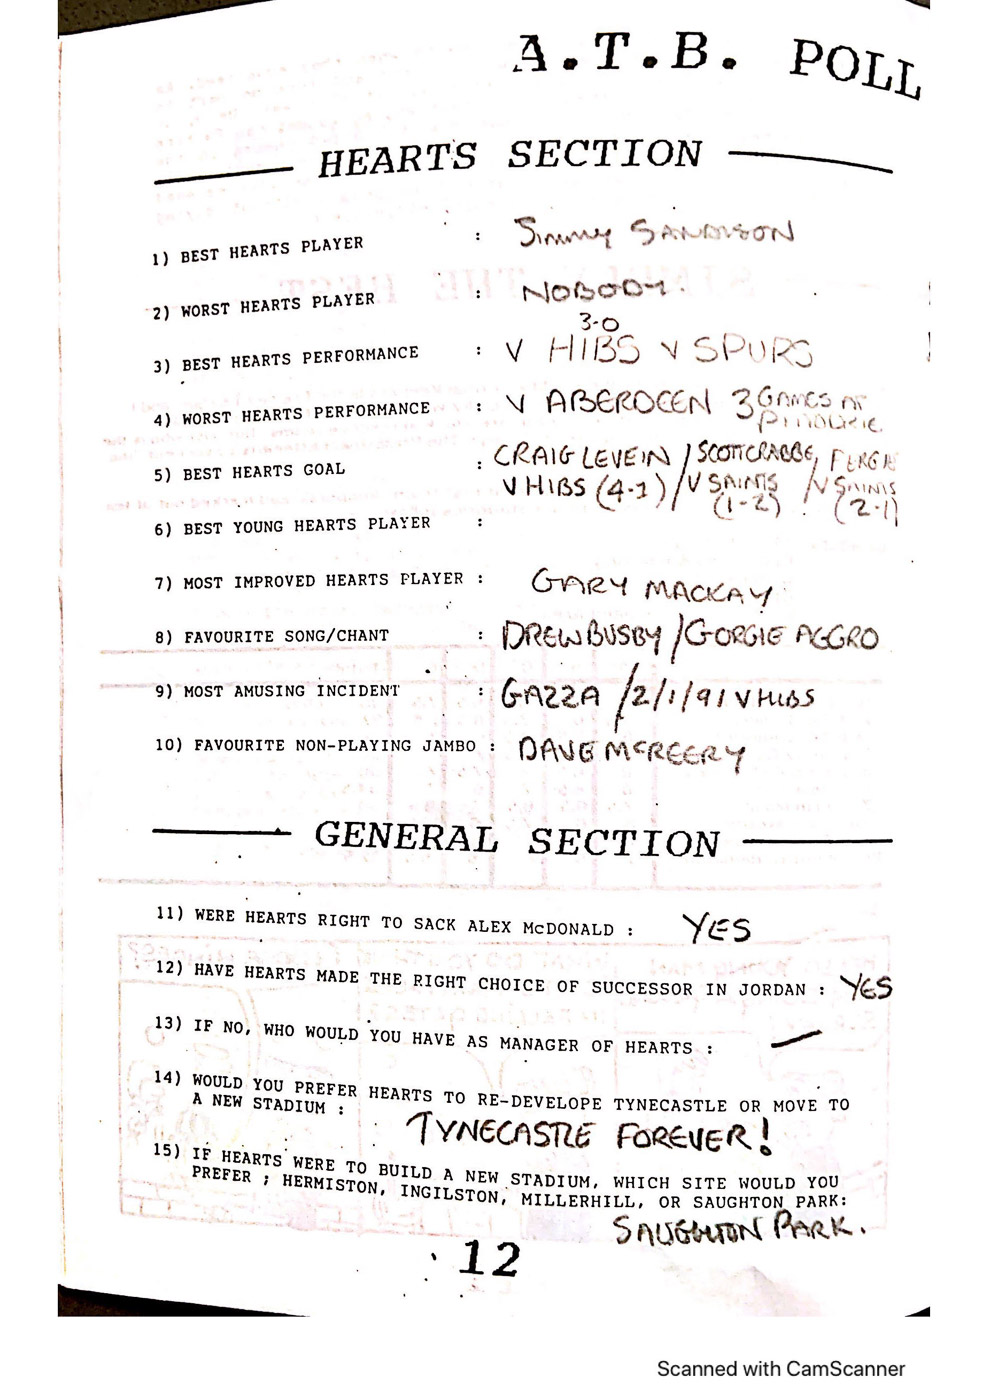 A.T.B. POLL
HEARTS SECTION
1) BEST HEARTS PLAYER : Jimmy SANDISON
2) WORST HEARTS PLAYER : NOBODY.
3-0
3) BEST HEARTS PERFORMANCE : V HIBS V SPURS
4) WORST HEARTS PERFORMANCE : V ABERDEEN 3 GAMES AT
PITTODRIE.
5) BEST HEARTS GOAL : CRAIG LEVEIN / SCOTT CRABBE, FERGIE
V HIBS (4-1) / V SAINTS / V SAINTS
(1-2) (2-1)
6) BEST YOUNG HEARTS PLAYER :
7) MOST IMPROVED HEARTS PLAYER : GARY MACKAY
8) FAVOURITE SONG/CHANT : DREW BUSBY / GORGIE AGGRO
9) MOST AMUSING INCIDENT : GAZZA / 2/1/91 V HIBS
10) FAVOURITE NON-PLAYING JAMBO : DAVE McREERY
GENERAL SECTION
11) WERE HEARTS RIGHT TO SACK ALEX McDONALD : YES
12) HAVE HEARTS MADE THE RIGHT CHOICE OF SUCCESSOR IN JORDAN : YES
13) IF NO, WHO WOULD YOU HAVE AS MANAGER OF HEARTS : —
14) WOULD YOU PREFER HEARTS TO RE-DEVELOPE TYNECASTLE OR MOVE TO
A NEW STADIUM :
TYNECASTLE FOREVER!
15) IF HEARTS WERE TO BUILD A NEW STADIUM, WHICH SITE WOULD YOU
PREFER ; HERMISTON, INGILSTON, MILLERHILL, OR SAUGHTON PARK:
SAUGHTON PARK.
12
Scanned with CamScanner